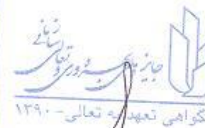 جایزه ملی بهره وری و تعالی سازمانی
گواهی تعهد به تعالی - ۱۳۹۰